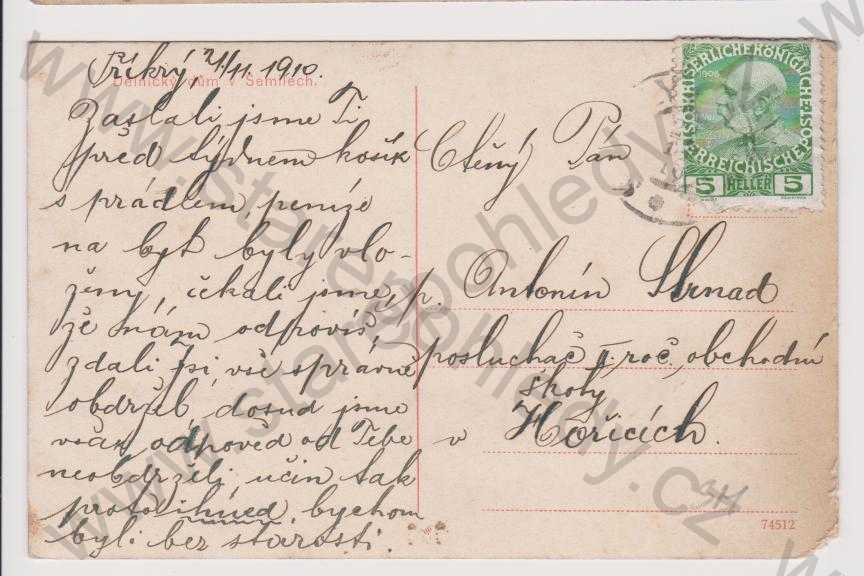 Příkrý, 21/11. 1910.
Dělnický dům v Semilech.
Zaslali jsme Ti
před týdnem košík
s prádlem, peníze
na byt byly vlo-
ženy, čekali jsme,
že nám odpovíš,
zdali jsi vše správně
obdržel, dosud jsme
však odpověď od Tebe
neobdrželi, učiň tak
proto ihned, bychom
byli bez starosti.
Ctěný Pán
p. Antonín Strnad
posluchač II. roč. obchodní
školy
v Hořicích.
KAISERLICHE KÖNIGLICHE
ÖSTERREICHISCHE POST
1908
5 HELLER 5
74512
www.starepohledy.cz